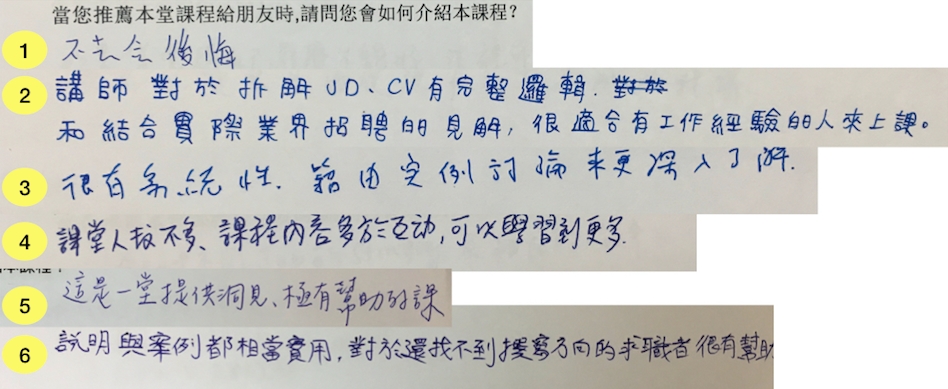 當您推薦本堂課程給朋友時,請問您會如何介紹本課程?
1 不去會後悔
2 講師對於拆解JD、CV有完整邏輯.對於
和結合實際業界招聘的見解,很適合有工作經驗的人來上課。
3 很有系統性.藉由实例討論来更深入了解.
4 課堂人数不多、課程内容多於互动,可以學習到更多.
5 這是一堂提供洞見、極有幫助的課
6 説明與案例都相當實用,對於還找不到撰寫方向的求職者很有幫助